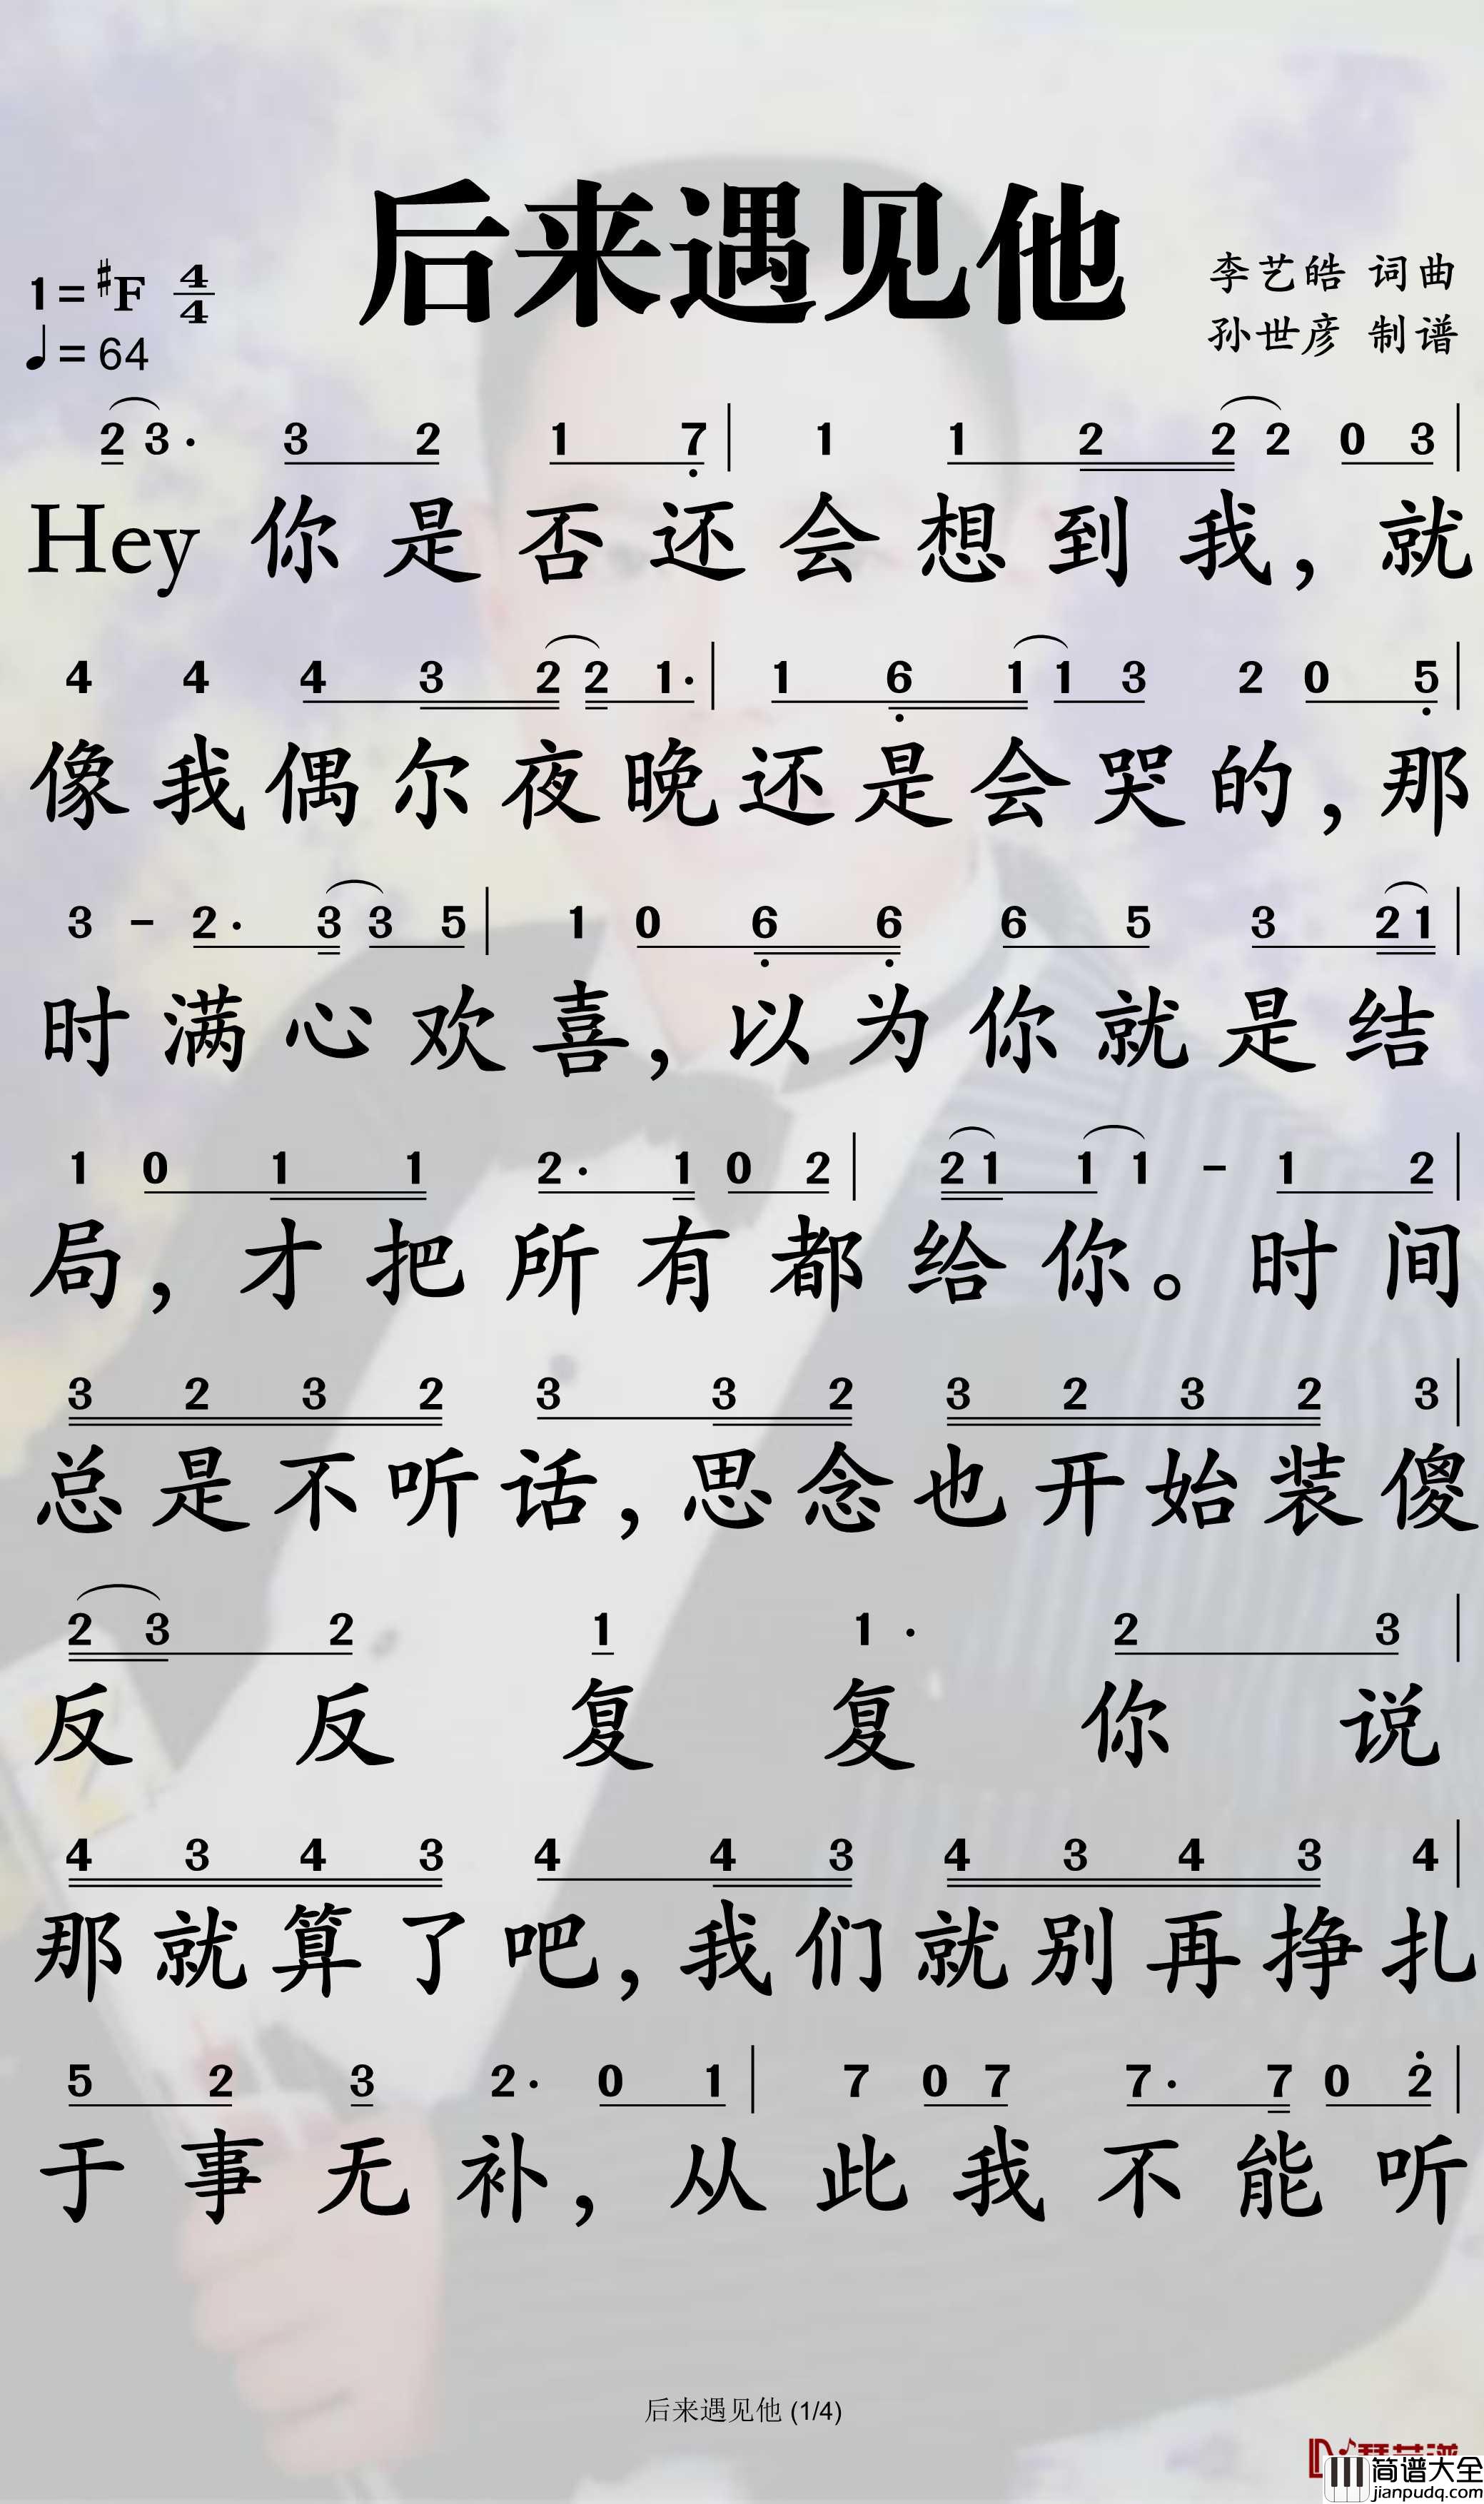 后来遇见他
1=#F 4/4
♩=64
李艺皓 词曲
孙世彦 制谱
2 3· 3 2 1 7̣ | 1 1 2 2 2 0 3 |
Hey 你是否还会想到我，就
4 4 4 3 2 2 1· | 1 6̣ 1 1 3 2 0 5̣ |
像我偶尔夜晚还是会哭的，那
3 - 2· 3 3 5 | 1 0 6̣ 6̣ 6 5 3 2 1 |
时满心欢喜，以为你就是结
1 0 1 1 2· 1 0 2 | 2 1 1 1 - 1 2 |
局，才把所有都给你。时间
3 2 3 2 3 3 2 3 2 3 2 3 |
总是不听话，思念也开始装傻
2 3 2 1 1· 2 3 |
反反复复你说
4 3 4 3 4 4 3 4 3 4 3 4 |
那就算了吧，我们就别再挣扎
5 2 3 2· 0 1 | 7 0 7 7· 7 0 2̇ |
于事无补，从此我不能听
后来遇见他 (1/4)
简谱大全
jianpudq.com